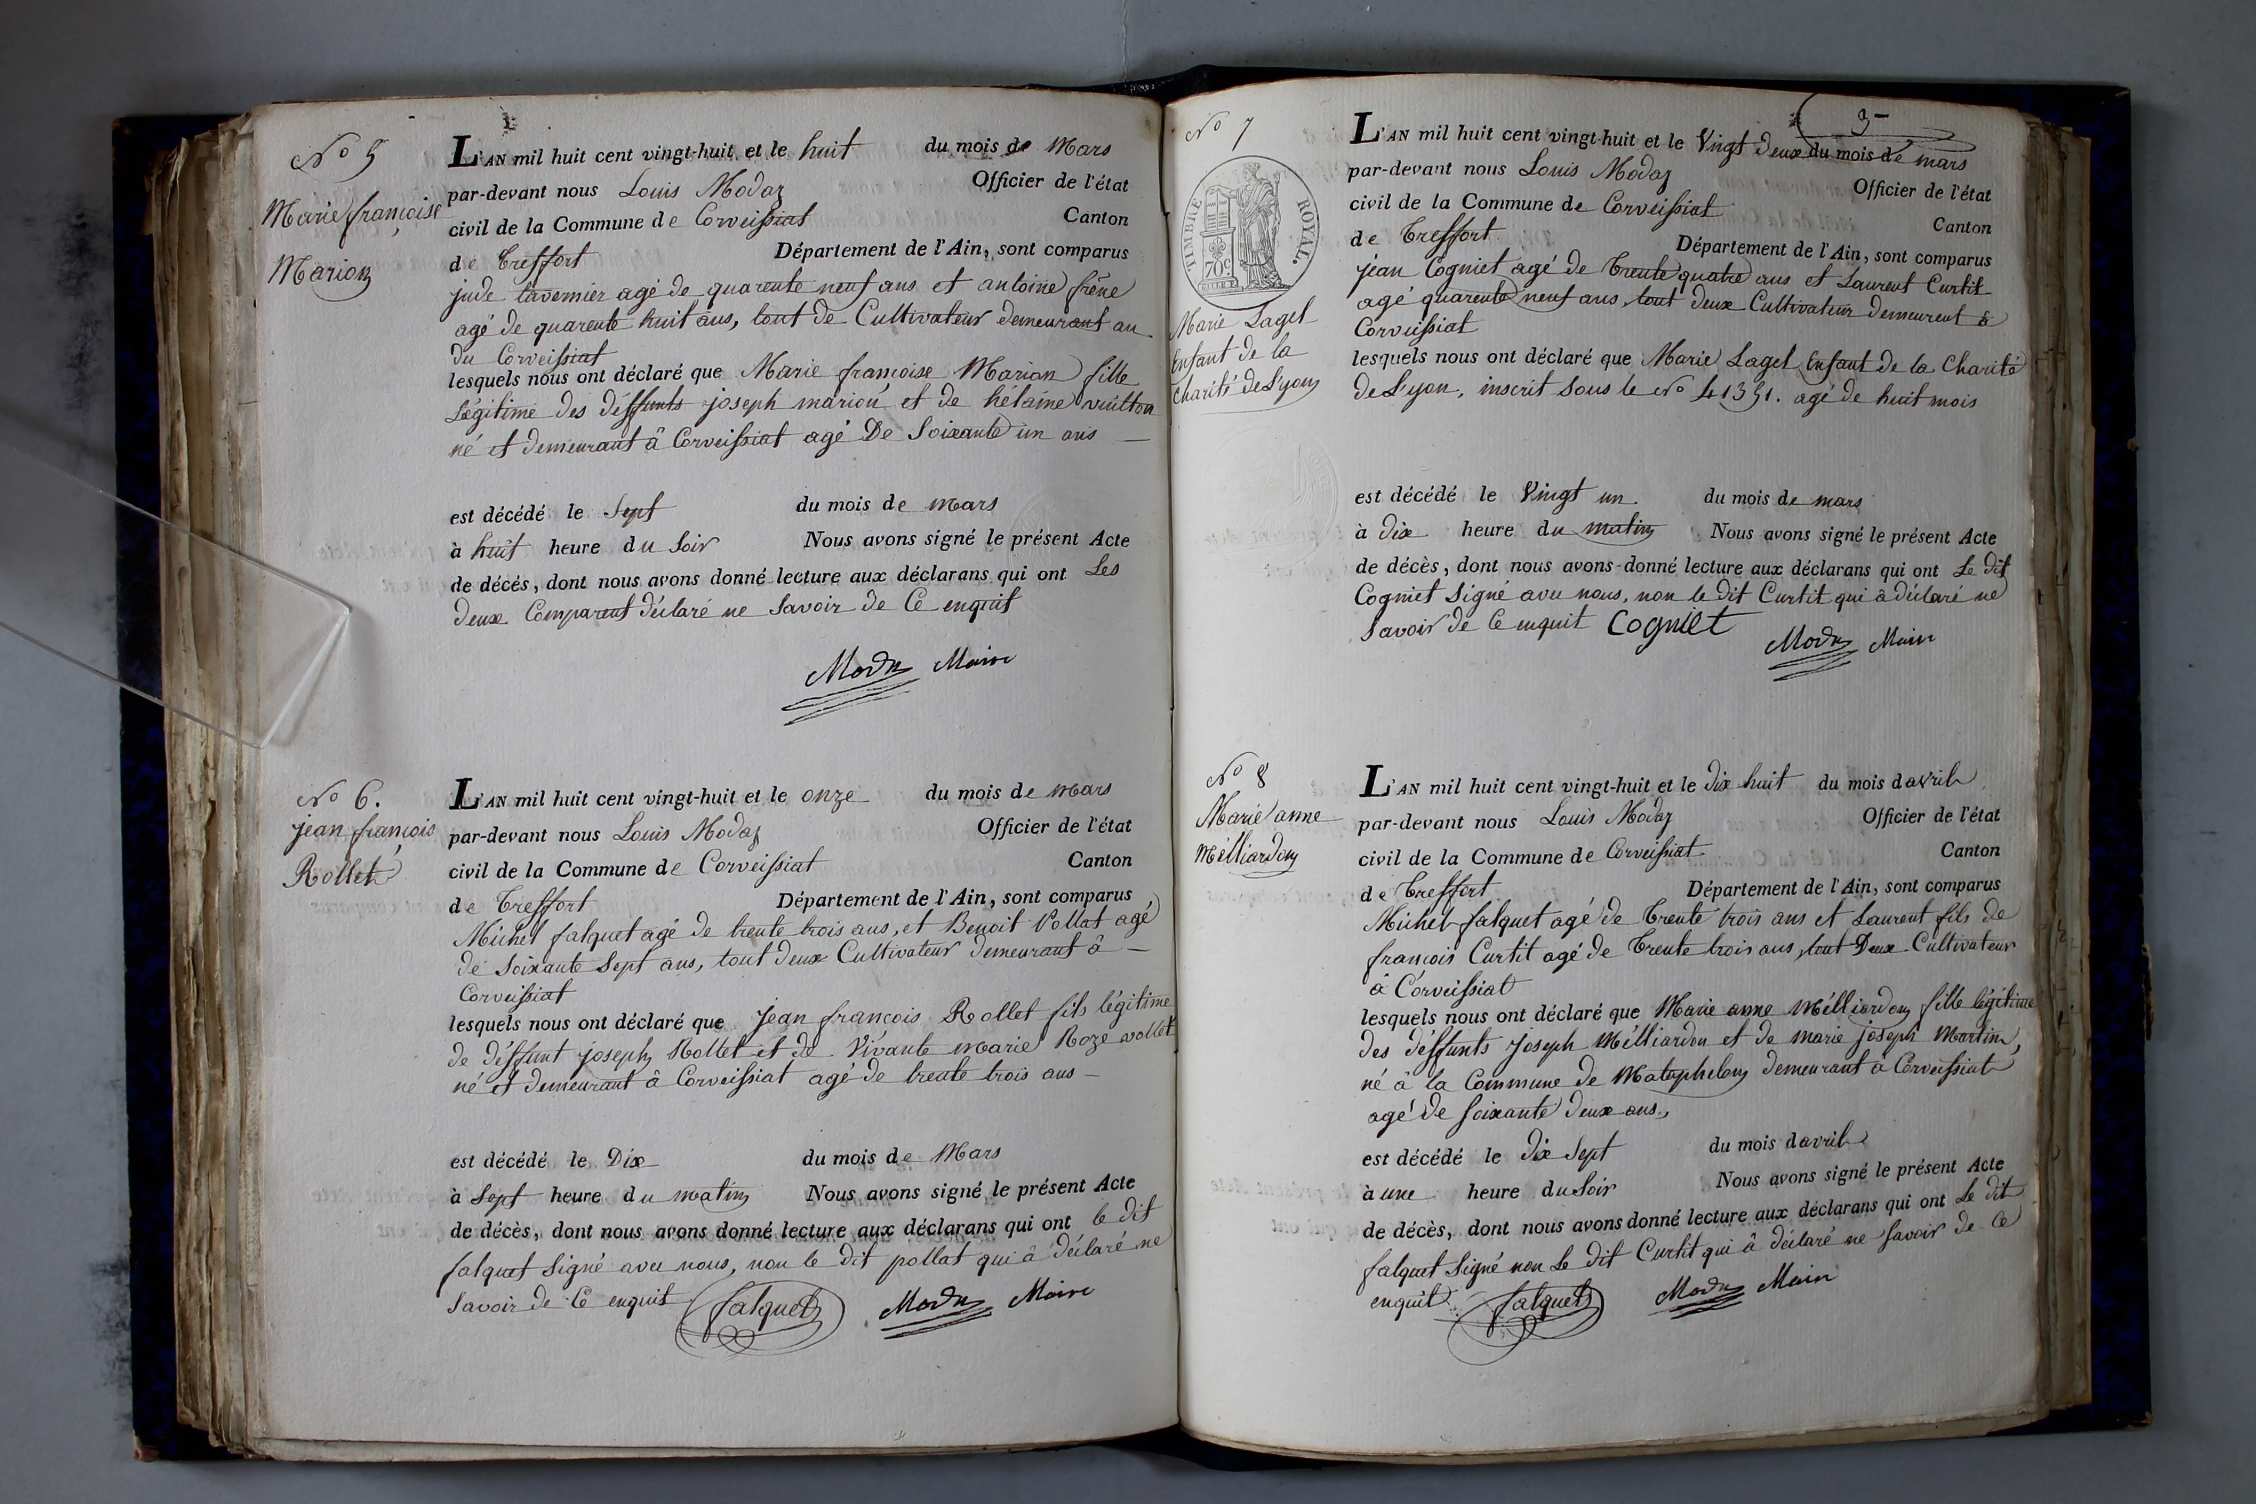 No 5
Marie françoise
Marion
L'AN mil huit cent vingt-huit et le huit du mois de Mars
par-devant nous Louis Modaz Officier de l'état
civil de la Commune de Corveissiat Canton
de Treffort Département de l'Ain, sont comparus
jude tavernier agé de quarente neuf ans et antoine frêne
agé de quarente huit ans, tout de Cultivateur demeurant au
du Corveissiat
lesquels nous ont déclaré que Marie françoise Marion fille
Légitime des déffunts joseph marion et de hélaine vuitton
né et demeurant â Corveissiat agé De Soixante un ans
est décédé le Sept du mois de mars
à huit heure du Soir Nous avons signé le présent Acte
de décés, dont nous avons donné lecture aux déclarans qui ont Les
deux Comparent déclaré ne Savoir de Ce enquit
Modaz Maire
No 6.
jean françois
Rollet
L'AN mil huit cent vingt-huit et le onze du mois de mars
par-devant nous Louis Modaz Officier de l'état
civil de la Commune de Corveissiat Canton
de Treffort Département de l'Ain, sont comparus
Michel falquet agé de trente trois ans, et Benoit Pollat agé
de Soixante Sept ans, tout deux Cultivateur demeurant â
Corveissiat
lesquels nous ont déclaré que jean françois Rollet fils légitime
de déffunt joseph Rollet et de Vivante marie Roze
né et demeurant â Corveissiat agé de trente trois ans
est décédé le Dix du mois de Mars
à Sept heure du matin Nous avons signé le présent Acte
de décès, dont nous avons donné lecture aux déclarans qui ont le dit
falquet Signé avec nous, non le dit pollat qui â déclaré ne
Savoir de Ce enquit falquet Modaz Maire
3
No 7
TIMBRE ROYAL.
70c
Marie Lagel
Enfant de la
Charité de Lyon
L'AN mil huit cent vingt-huit et le Vingt deux du mois de mars
par-devant nous Louis Modaz Officier de l'état
civil de la Commune de Corveissiat Canton
de Treffort Département de l'Ain, sont comparus
jean Cogniet agé de Trente quatre ans et Laurent Curtit
agé quarente neuf ans, tout deux Cultivateur Demeurent à
Corveissiat
lesquels nous ont déclaré que Marie Lagel Enfant de la Charité
de Lyon, inscrit Sous le No 41351. agé de huit mois
est décédé le Vingt un du mois de mars
à dix heure du matin Nous avons signé le présent Acte
de décès, dont nous avons donné lecture aux déclarans qui ont Le dit
Cogniet Signé avec nous, non le dit Curtit qui â déclaré ne
Savoir de Ce enquit Cogniet
Modaz Maire
No 8
Marie anne
Mélliardon
L'AN mil huit cent vingt-huit et le dix huit du mois davril
par-devant nous Louis Modaz Officier de l'état
civil de la Commune de Corveissiat Canton
de Treffort Département de l'Ain, sont comparus
Michel falquet agé de Trente trois ans et Laurent fils de
françois Curtit agé de Trente trois ans, tout Deux Cultivateur
â Corveissiat
lesquels nous ont déclaré que Marie anne Mélliardon fille légitime
des déffunts joseph Mélliardon et de marie joseph Martin,
né â la Commune de Mataphelon demeurant à Corveissiat
agé de Soixante deux ans,
est décédé le dix Sept du mois davril
à une heure du Soir Nous avons signé le présent Acte
de décès, dont nous avons donné lecture aux déclarans qui ont Le dit
falquet Signé non Le dit Curtit qui â déclaré ne Savoir de Ce
enquit. falquet Modaz Maire